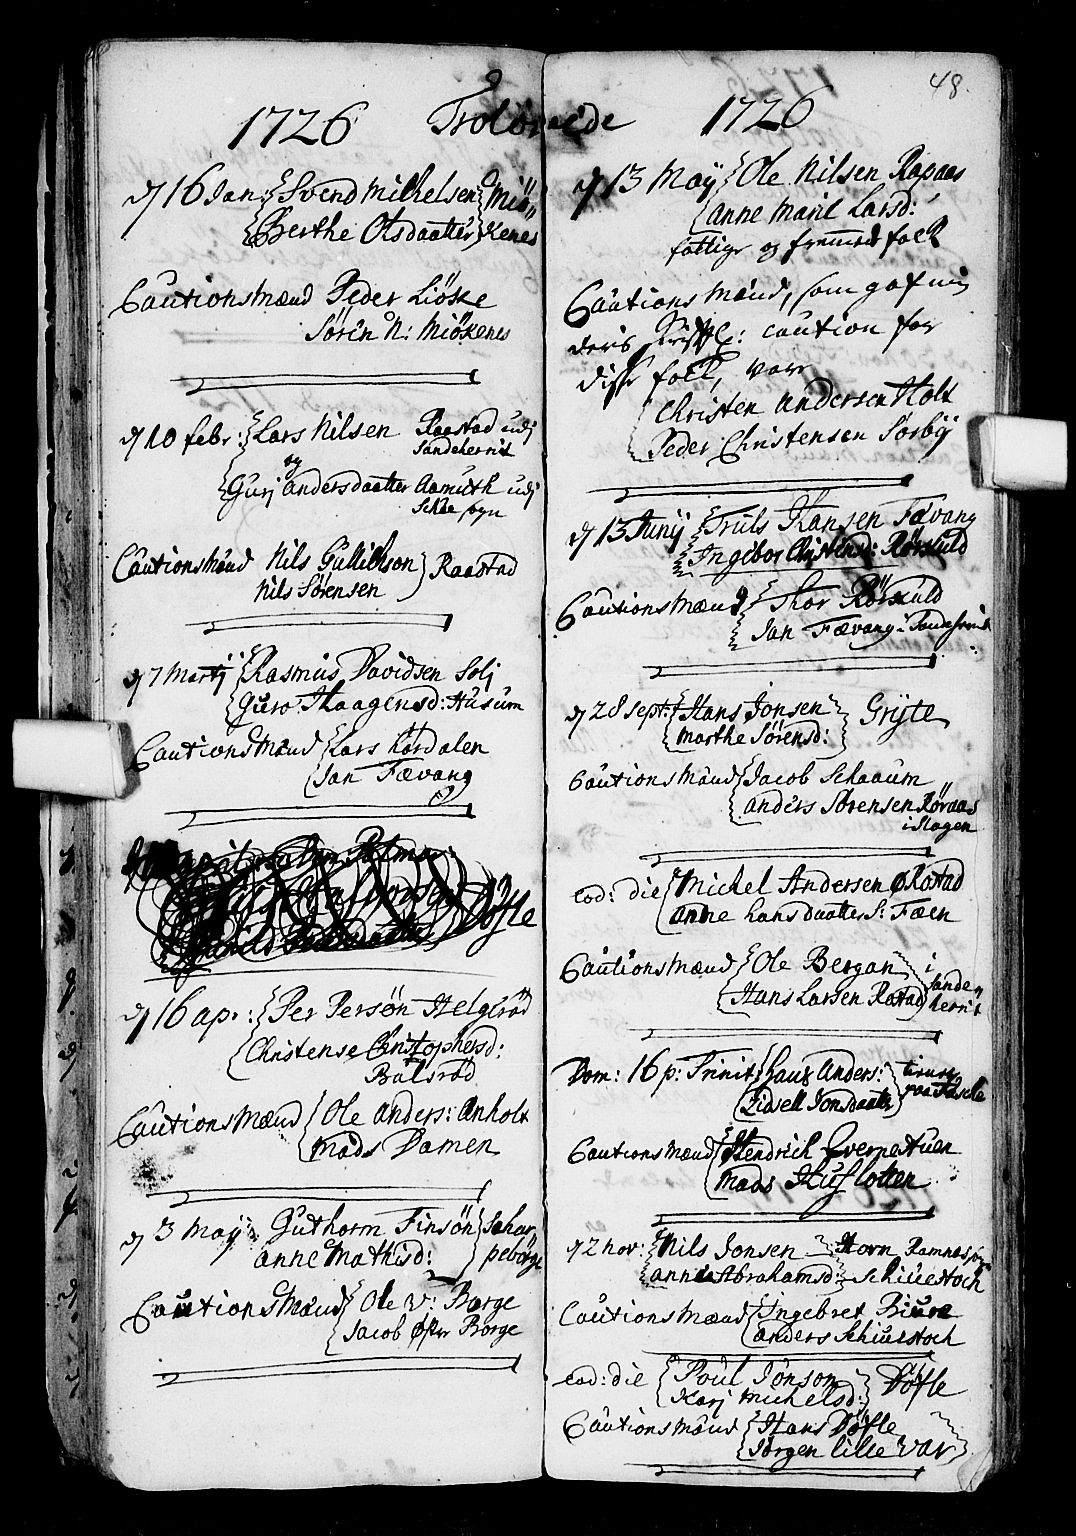 1726 Trolovede
d 16 Jan: Svend Michelsen Miö„
Berthe Olsdaatter kenes
Cautionsmænd Peder Liöske
Sören N: Miökenes
d 10 febr: Lars Nilsen Raastad udj
Sandeherrit
og
Gurj Andersdaatter Aamuth udj
sogn
Cautionsmænd Nils Gullichson Raastad
Nils Sørensen
d 7 Martij Rasmus Davidsen Solj
Guro Haagensd: Husum
Cautionsmænd Lars Nordalen
Jan Fævang
Døfle
d 16 apr: Per Persøn Helgerød
Christense Christophersd:
Bulsrød
Cautionsmænd Ole Anders: Anholt
Mads Damen
d 3 May Guthorm Finsøn Schar„
Anne Mathisd: peborge
Cautionsmænd Ole V: Borge
Jacob Øster Borge
1726
48.
d 13 May Ole Nilsen Rapaas
Anne Marit Larsd:
fattige og fremmed folk
Cautionsmænd, som gaf
deris caution for
disse folk, vare
Christen Andersen Holt
Peder Christensen Sørbÿ
d 13 Junij Truls Hansen Fævang
Ingebor Christensd: Rørkuld
Cautionsmænd Thor Rørkuld
Jan Fævang i Sandeherrit
d 28 sept: Hans Jonsen Grÿte
Marthe Sørensd:
Cautionsmænd Jacob Schaaum
Anders Sørensen Røraas
i Slagen
eod: die Michel Andersen Ø Rastad
Anne Larsdaatter S: Fæen
Cautionsmænd Ole Bergan i
Hans Larsen Rastad Sande„
herrit
Dom: 16 p: Trinit: Lars Anders:
Zidsell Jonsdaatter
Cautionsmænd Hendrich
Mads Huslotten
d 2 nov: Nils Jonsen Horn Ramnes
Anne Abrahamsd: Schiuestoch
Cautionsmænd Ingebret Biure
Anders Schiuestoch
eod: die Poul Jonson Døfle
Karj Michelsd:
Cautionsmænd Hans Døfle
Jørgen lille Var